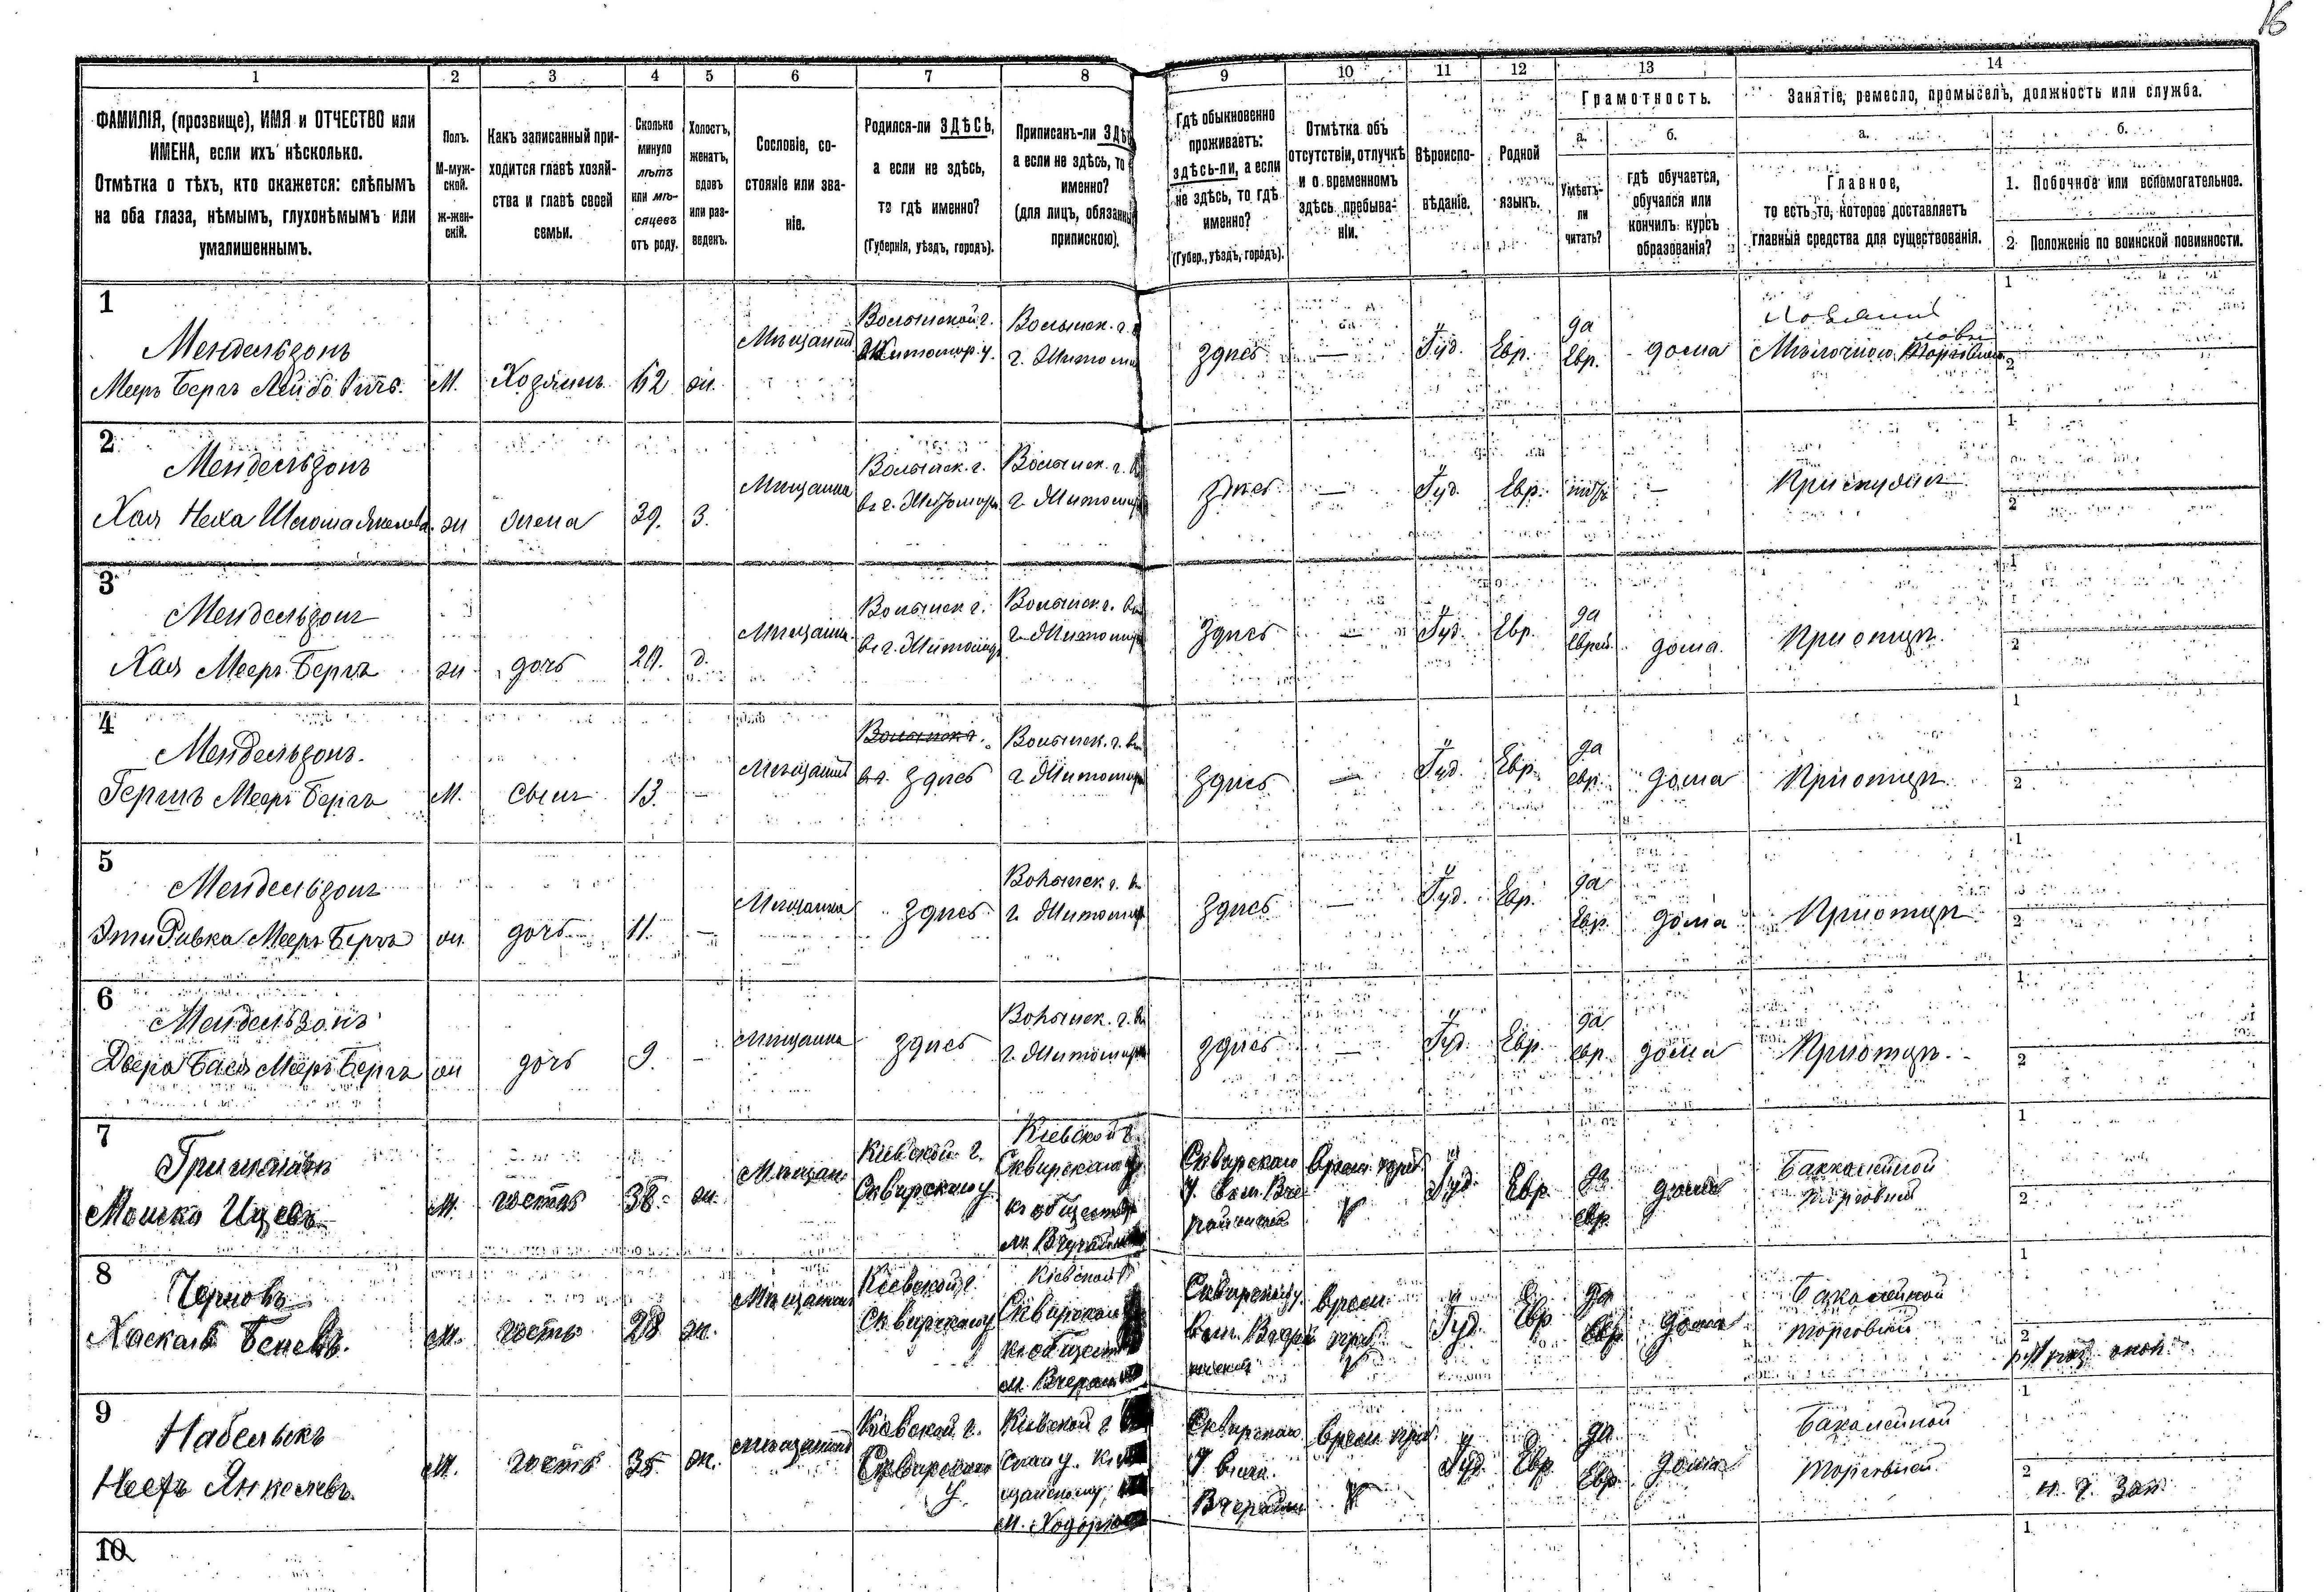 16
1 2 3 4 5 6 7 8 9 10 11 12 13 14
ФАМИЛІЯ, (прозвище), ИМЯ и ОТЧЕСТВО или
ИМЕНА, если ихъ нѣсколько.
Отмѣтка о тѣхъ, кто окажется: слѣпымъ
на оба глаза, нѣмымъ, глухонѣмымъ или
умалишеннымъ.
Полъ.
М-муж-
ской.
Ж-жен-
скій.
Какъ записанный при-
ходится главѣ хозяй-
ства и главѣ своей
семьи.
Сколько
минуло
лѣтъ
или мѣ-
сяцевъ
отъ роду.
Холостъ,
женатъ,
вдовъ
или раз-
веденъ.
Сословіе, со-
стояніе или зва-
ніе.
Родился-ли ЗДѢСЬ,
а если не здѣсь,
то гдѣ именно?
(Губернія, уѣздъ, городъ).
Приписанъ-ли
а если не здѣсь, то
именно?
(для лицъ, обязанны
припискою).
Гдѣ обыкновенно
проживаетъ:
здѣсь-ли, а если
не здѣсь, то гдѣ
именно?
(Губер., уѣздъ, городъ).
Отмѣтка объ
отсутствіи, отлучкѣ
и о временномъ
здѣсь пребыва-
ніи.
Вѣроиспо-
вѣданіе.
Родной
языкъ.
Грамотность.
а.
Умѣетъ-
ли
читать?
б.
гдѣ обучается,
обучался или
кончилъ курсъ
образованія?
Занятіе, ремесло, промыселъ, должность или служба.
а.
Главное,
то есть то, которое доставляетъ
главныя средства для существованія.
б.
1. Побочное или вспомогательное.
2. Положеніе по воинской повинности.
1
Мендельзонъ
Меер Бергъ Лейбовичъ М. Хозяинъ 62 ж.
Мещанин
Волынской г.
Житомир. у.
Волынск. г.
г. Житоми
здесь — Іуд. Евр.
да
Евр.
дома
Мелочной
1
2
2
Мендельзонъ
Хая Неха ж жена 39. З.
Мещанка
Волынск. г.
в г. Житомир
Волынск. г. в
г. Житомир
здесь — Іуд. Евр. —
1
2
3
Мендельзонъ
Хая Меер Бергъ ж дочь д.
Мещан.
Волынск г.
в г. Житомир
Волынск. г. в
г. Житомир
здесь — Іуд. Евр.
да
Еврей.
дома. При отце.
1
2
4
Мендельзонъ.
Гершъ Меер Бергъ М. сынъ 13. —
Мещанин
Волынск г.
здесь
Волынск. г. в
г Житомир
здесь — Іуд. Евр.
да
евр.
дома При отце.
1
2
5
Мендельзонъ
Эти Ривка Меер Бергъ ж. дочь 11. —
Мещанка
здесь
Волынск г. в
г. Житомир
здесь — Іуд. Евр.
да
Евр.
дома При отце
1
2
6
Мендельзонъ
Двера Бася Меер Бергъ ж дочь 9. —
Мещанка
здесь
Волынск. г. в
г. Житомир
здесь — Іуд. Евр.
да
евр.
дома При отце.
1
2
7
Мошко Ицевъ М. гость 38. ж.
Мещан.
Кіевской г.
Сквирскаго у
Кіевской г.
Сквирскаго у
к обществу
Сквирскаго
у.
врем. преб
Іуд. Евр.
да
евр.
дома
Бакалейной
торговлей
1
2
8
Черновъ
Хаскаль Беневъ. М. гость 28 ж.
Мещанин
Кіевской г.
Сквирскаго у
Кіевской г
Сквирскаго
к обществ
м. Вчерай
Сквирск у.
врем.
преб
Іуд. Евр.
да
Евр.
дома
Бакалейной
торговлей
1
2
9
Набельскъ
Янкелевъ. М. гость 35. ж.
мещанин
Кіевской г.
Сквирскаго
у.
Кіевской г
м. Ходорк
Сквирскаго
у
Вчерайш
врем преб.
Іуд. Евр.
да
Евр.
дома
Бакалейной
торговлей.
1
2
10.
1